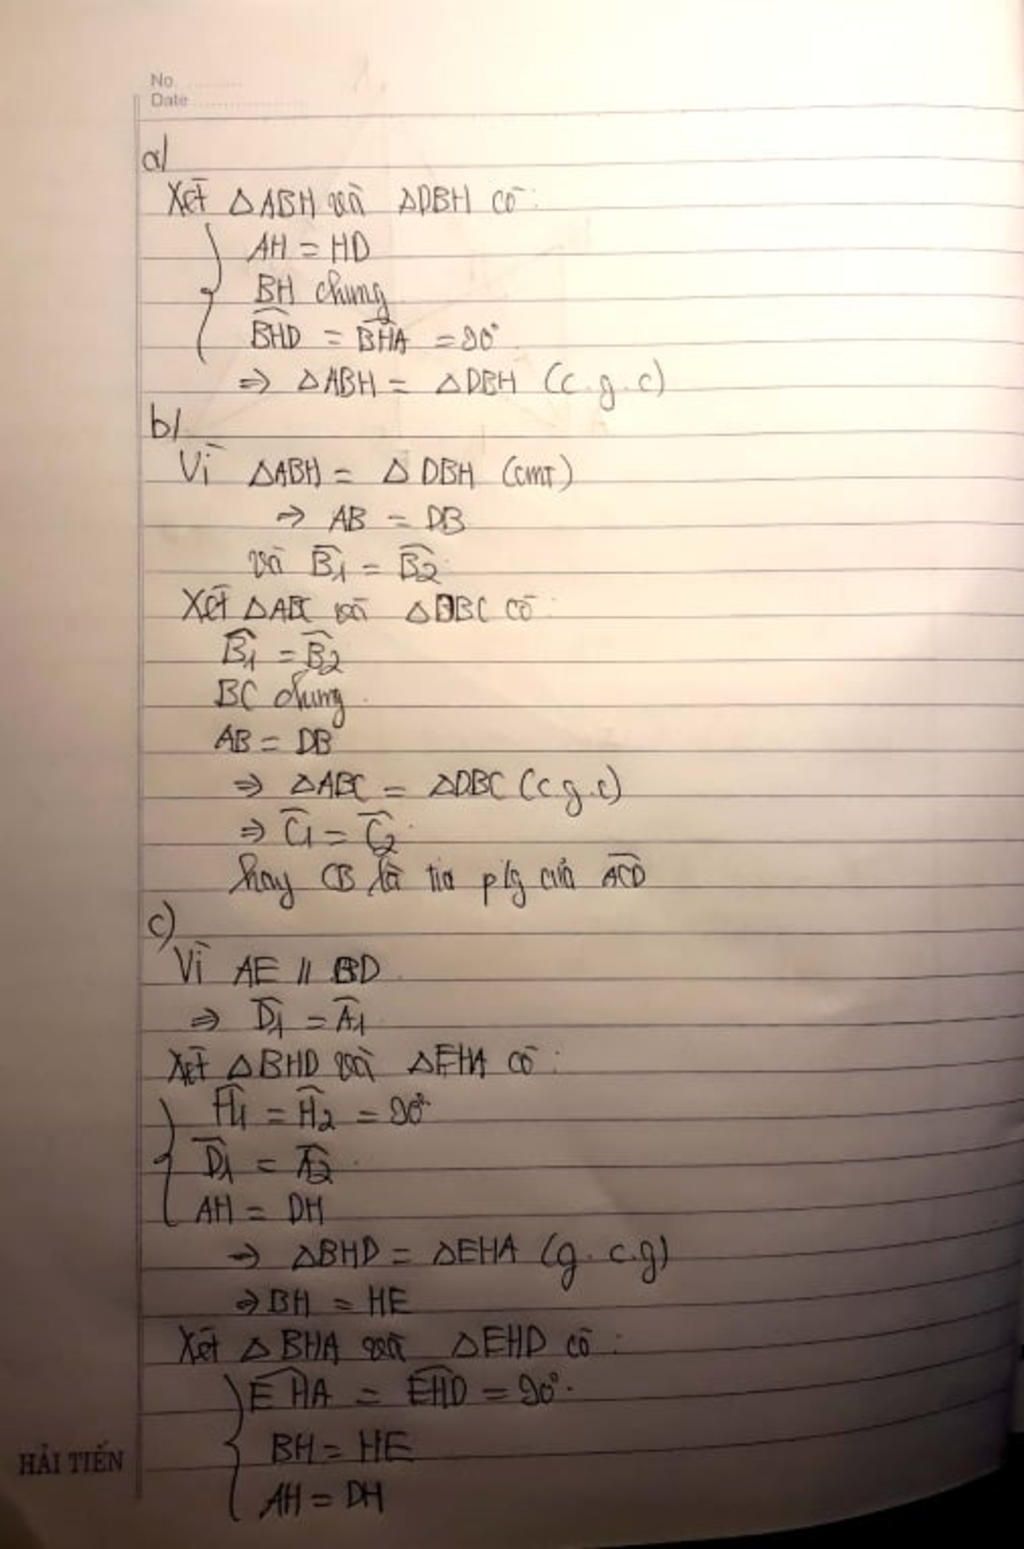 No.
Date
a)
Xét △ABH và △DBH có:
AH = HD
BH chung
BHD = BHA = 90°
⇒ △ABH = △DBH (c.g.c)
b)
Vì △ABH = △DBH (cmt)
⇒ AB = DB
và B1 = B2
Xét △ABC và △DBC có:
B1 = B2
BC chung
AB = DB
⇒ △ABC = △DBC (c.g.c)
⇒ C1 = C2
hay CB là tia p/g của ACD
c)
Vì AE // BD
⇒ D1 = A1
Xét △BHD và △EHA có:
H1 = H2 = 90°
D1 = A2
AH = DH
⇒ △BHD = △EHA (g.c.g)
⇒ BH = HE
Xét △BHA và △EHD có:
EHA = EHD = 90°
BH = HE
AH = DH
HẢI TIẾN